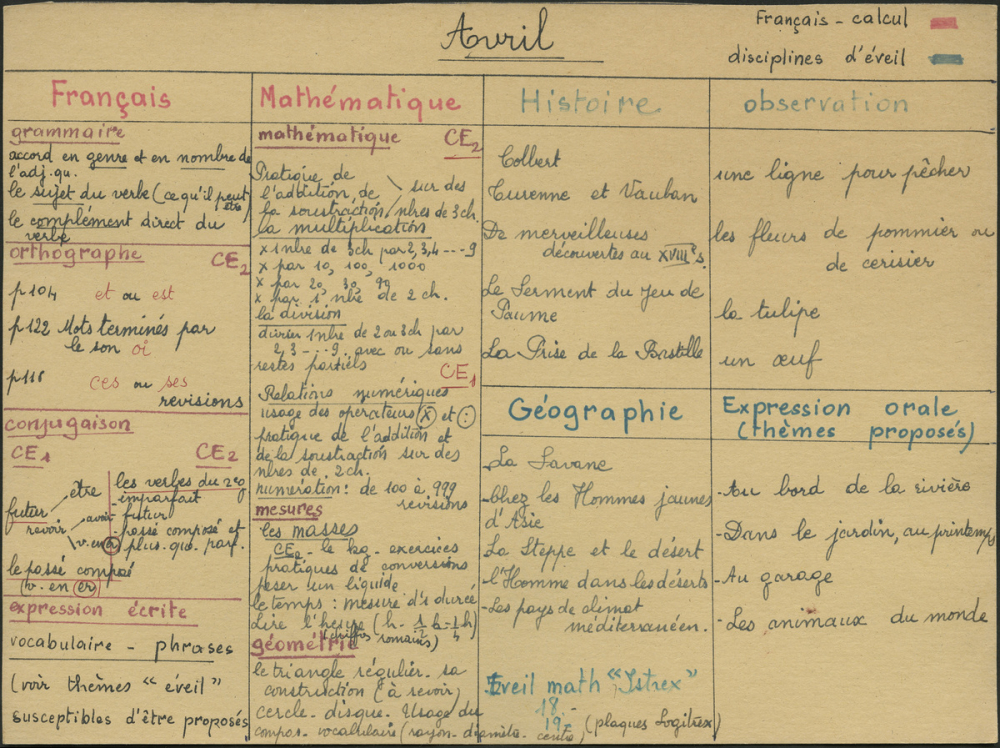 Avril
Français - calcul
disciplines d'éveil
Français
grammaire
accord en genre et en nombre de
l'adj. qu.
le sujet du verbe (ce qu'il peut
être)
le complément direct du
verbe
orthographe CE2
p 104 et ou est
p 122 Mots terminés par
le son oi
p 116 ces ou ses
revisions
conjugaison
CE1 CE2
futur
être
revoir avoir
v. en er
le passé composé
(v. en er)
les verbes du 2e g
- imparfait
- futur
- passé composé et
plus. que. parf.
expression écrite
vocabulaire - phrases
(voir thèmes "éveil"
susceptibles d'être proposés
Mathématique
mathématique CE2
Pratique de
l'addition de
la soustraction
sur des
nbres de 3 ch.
la multiplication
x 1 nbre de 3ch par 2, 3, 4 ---- 9
x par 10, 100, 1000
x par 20, 30, 90
x par 1 nbre de 2 ch.
la division
diviser 1 nbre de 2 ou 3ch par
2, 3 - .. 9. avec ou sans
restes partiels
CE1
Relations numériques
usage des operateurs (x) et (:)
pratique de l'addition et
de la soustraction sur des
nbres de 2 ch.
numération : de 100 à 999
revisions
mesures
les masses
CE2 - le kg - exercices
pratiques de conversions
peser un liquide
le temps : mesure d'1 durée
Lire l'heure (h - 1/2 h - 1/4 h)
(chiffres romains)
géométrie
le triangle régulier. sa
construction (à revoir)
cercle - disque. Usage du
compas - vocabulaire (rayon - diamètre - centre)
Histoire
Colbert
Turenne et Vauban
De merveilleuses
découvertes au XVIIIe s.
Le Serment du Jeu de
Paume
La Prise de la Bastille
Géographie
- La Savane
- Chez les Hommes jaunes
d'Asie
La Steppe et le désert
- l'Homme dans les déserts
- Les pays de climat
méditerranéen.
Eveil math "Istrex"
18. -
19 - (plaques Logitrex)
observation
une ligne pour pêcher
les fleurs de pommier ou
de cerisier
la tulipe
un œuf
Expression orale
(thèmes proposés)
- Au bord de la rivière
- Dans le jardin, au printemps
- Au garage
- Les animaux du monde